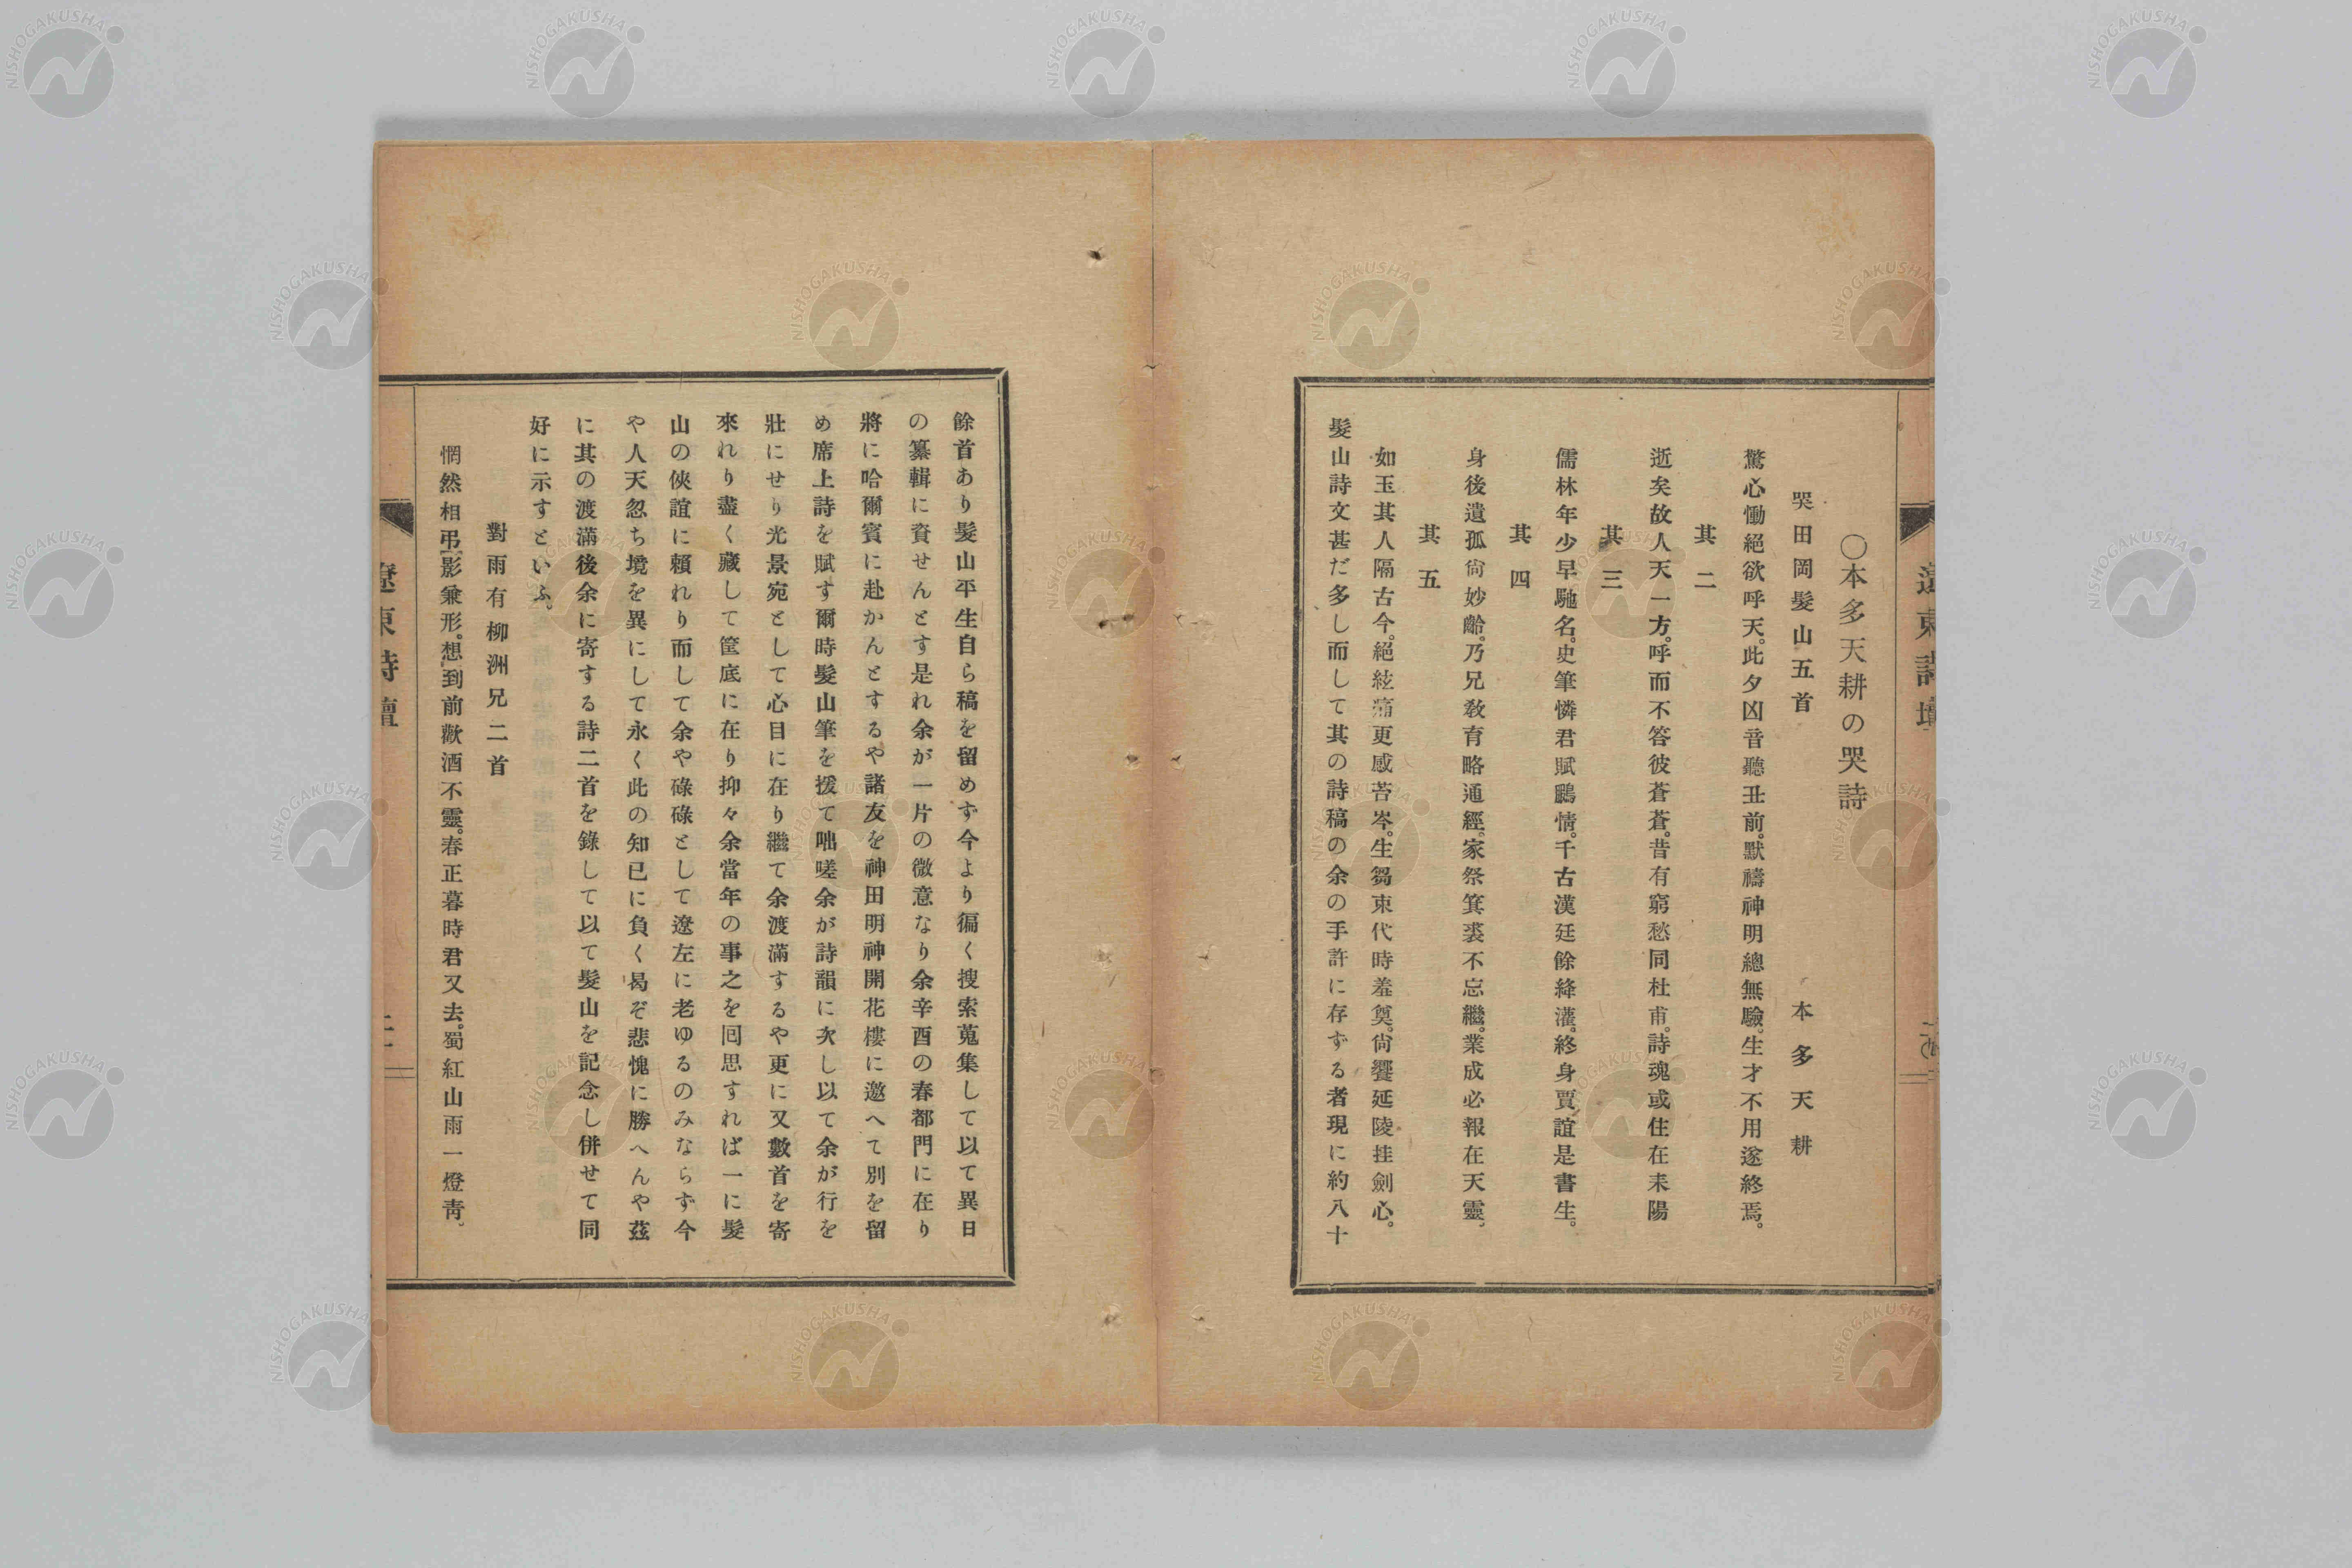 遼東詩壇
〇本多天耕の哭詩
哭田岡髮山五首 本多天耕
驚心慟絕欲呼天。此夕凶音聽丑前。默禱神明總無驗。生才不用遂終焉。
其二
逝矣故人天一方。呼而不答彼蒼蒼。昔有窮愁同杜甫。詩魂或住在耒陽
其三
儒林年少早馳名。史筆憐君賦鵩情。千古漢廷餘絳灌。終身賈誼是書生。
其四
身後遺孤尙妙齡。乃兄敎育略通經。家祭箕裘不忘繼。業成必報在天靈。
其五
如玉其人隔古今。絕絃痛更感苔岑。生芻束代時羞奠。尙饗延陵挂劍心。
髮山詩文甚だ多し而して其の詩稿の余の手許に存ずる者現に約八十
餘首あり髮山平生自ら稿を留めず今より徧く搜索蒐集して以て異日
の纂輯に資せんとす是れ余が一片の微意なり余辛酉の春都門に在り
將に哈爾賓に赴かんとするや諸友を神田明神開花樓に邀へて別を留
め席上詩を賦す爾時髮山筆を援て咄嗟余が詩韻に次し以て余が行を
壯にせり光景宛として心目に在り繼て余渡滿するや更に又數首を寄
來れり盡く藏して筐底に在り抑々余當年の事之を回思すれば一に髮
山の俠誼に賴れり而して余や碌碌として遼左に老ゆるのみならず今
や人天忽ち境を異にして永く此の知已に負く曷ぞ悲愧に勝へんや茲
に其の渡滿後余に寄する詩二首を錄して以て髮山を記念し併せて同
好に示すといふ。
對雨有柳洲兄二首
惘然相弔影兼形。想到前歡酒不靈。春正暮時君又去。蜀紅山雨一燈靑。
遼東詩壇
NISHOGAKUSHA